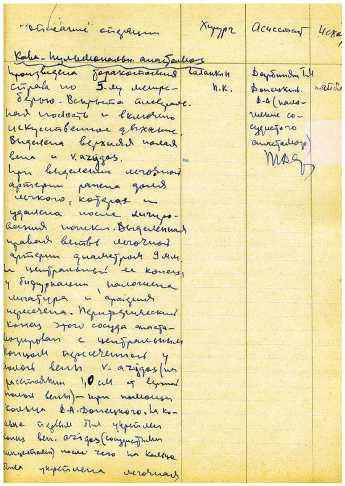 описание операции
Хирург
Ассистент
Исход
Кава-пульмональн. анастомоз
Произведена торакотомия
справа по 5-му межре-
берью. Вскрыта плевраль-
ная полость и включено
искуственное дыхание.
Выделена верхняя полая
вена и v. azygos.
При выделении легочной
артерии ранена доля
легкого, которая и
удалена после лигиро-
вания ножки. Выделенная
правая ветвь легочной
артерии диаметром 9 мм.
и центральный ее конец
у бифуркации, наложена
лигатура и артерия
пересечена. Периферический
конец этого сосуда анасто-
мозирован с центральным
концом пересеченной у
полой вены v. azygos (на
расстоянии 1,0 см от верхней
полой вены) - при помощи
кольца Д.А. Донецкого. На ко-
льце первым был укреплен
конец вен. azygos
после чего на кольце
была укреплена легочная
Галанкин
Н.К.
Дарбинян Т.М
Донецкий
Д.А (нало-
жение со-
судистого
анастомоза)